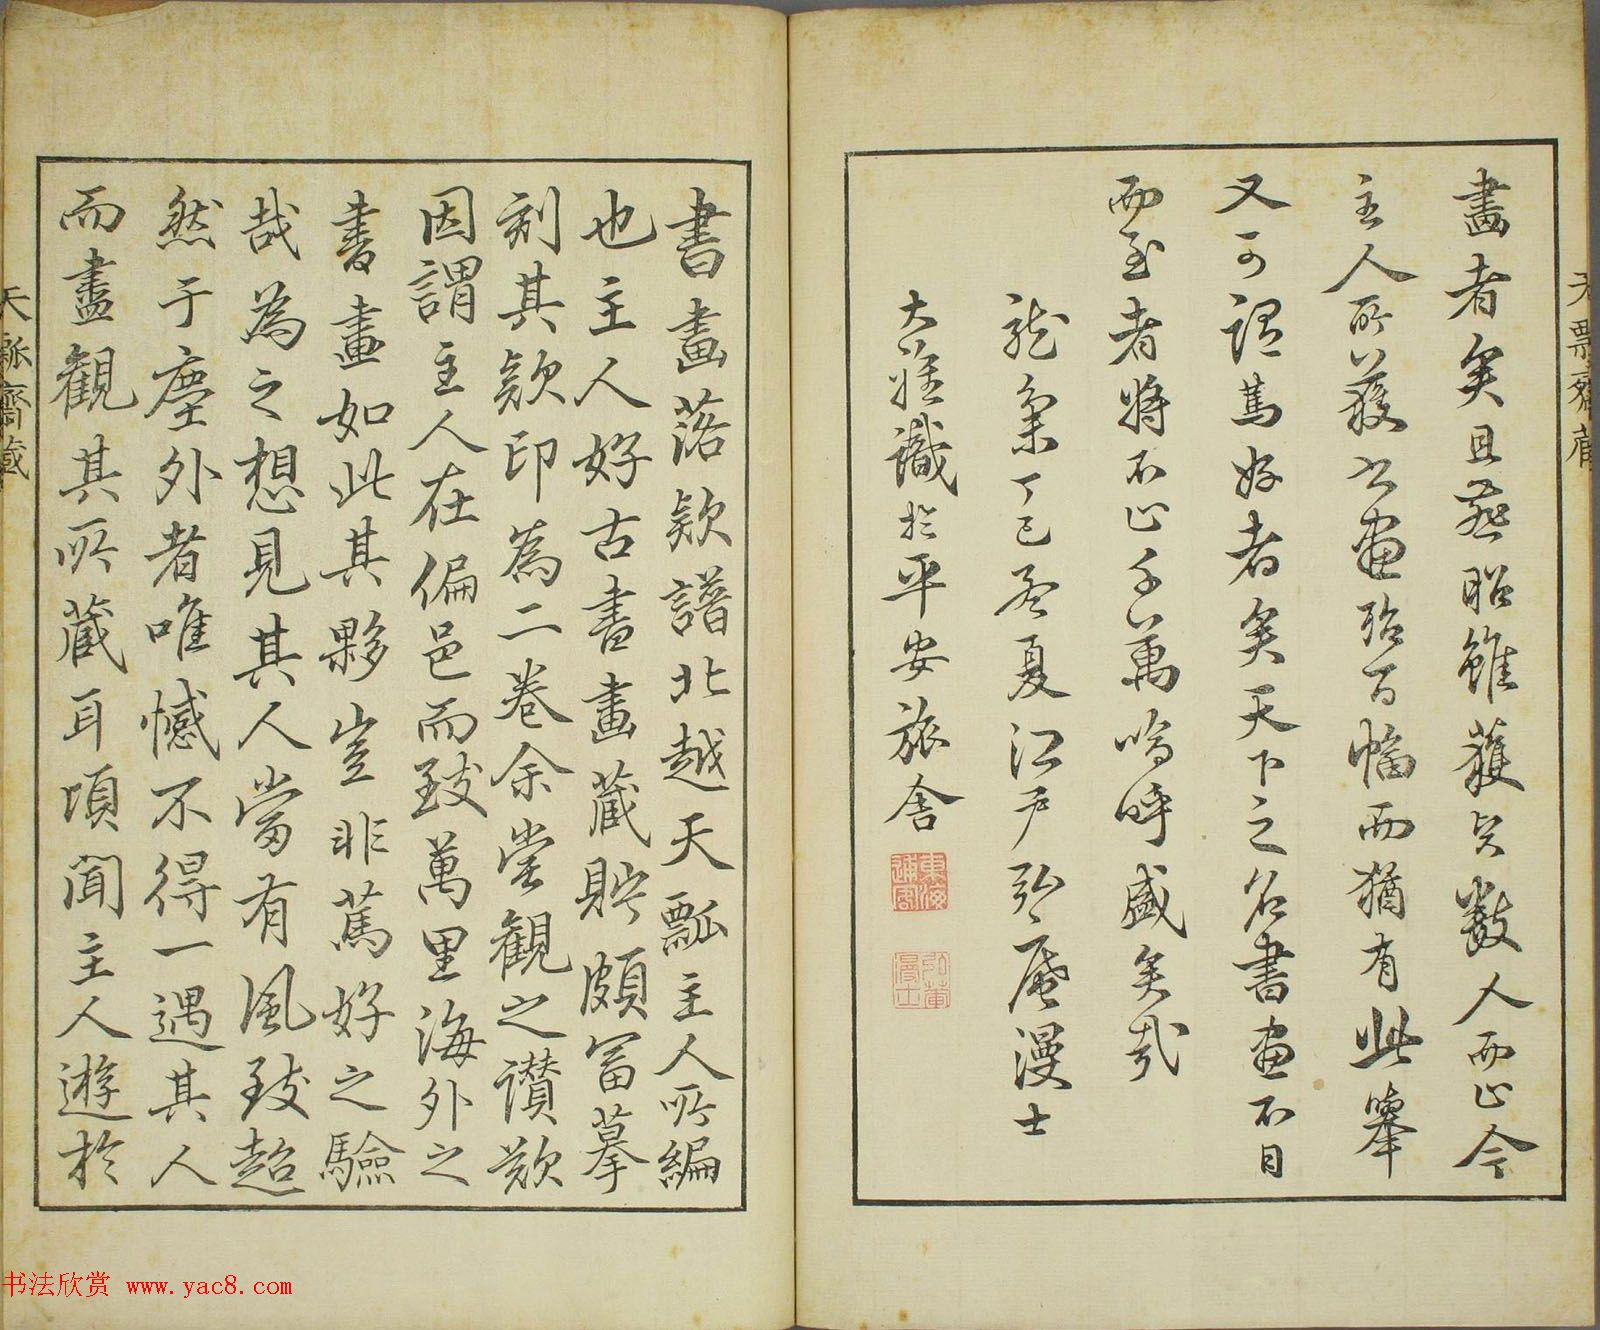 畫者矣且燕昭雖獲只數人而止今
主人所獲書畫殆百幅而猶有此舉
又可謂篤好者矣天下之名書畫不日
而至者將不止千萬嗚呼盛矣哉
龍集丁巳孟夏江戶弘庵漫士
大雅識於平安旅舍
書畫落欵譜北越天瓢主人所編
也主人好古書畫藏貯頗富摹
刻其欵印為二卷余嘗觀之讚歎
因謂主人在偏邑而致萬里海外之
書畫如此其夥豈非篤好之驗
哉為之想見其人當有風致超
然于塵外者唯憾不得一遇其人
而盡觀其所藏耳頃聞主人遊於
天瓢齋藏
书法欣赏 www.yac8.com